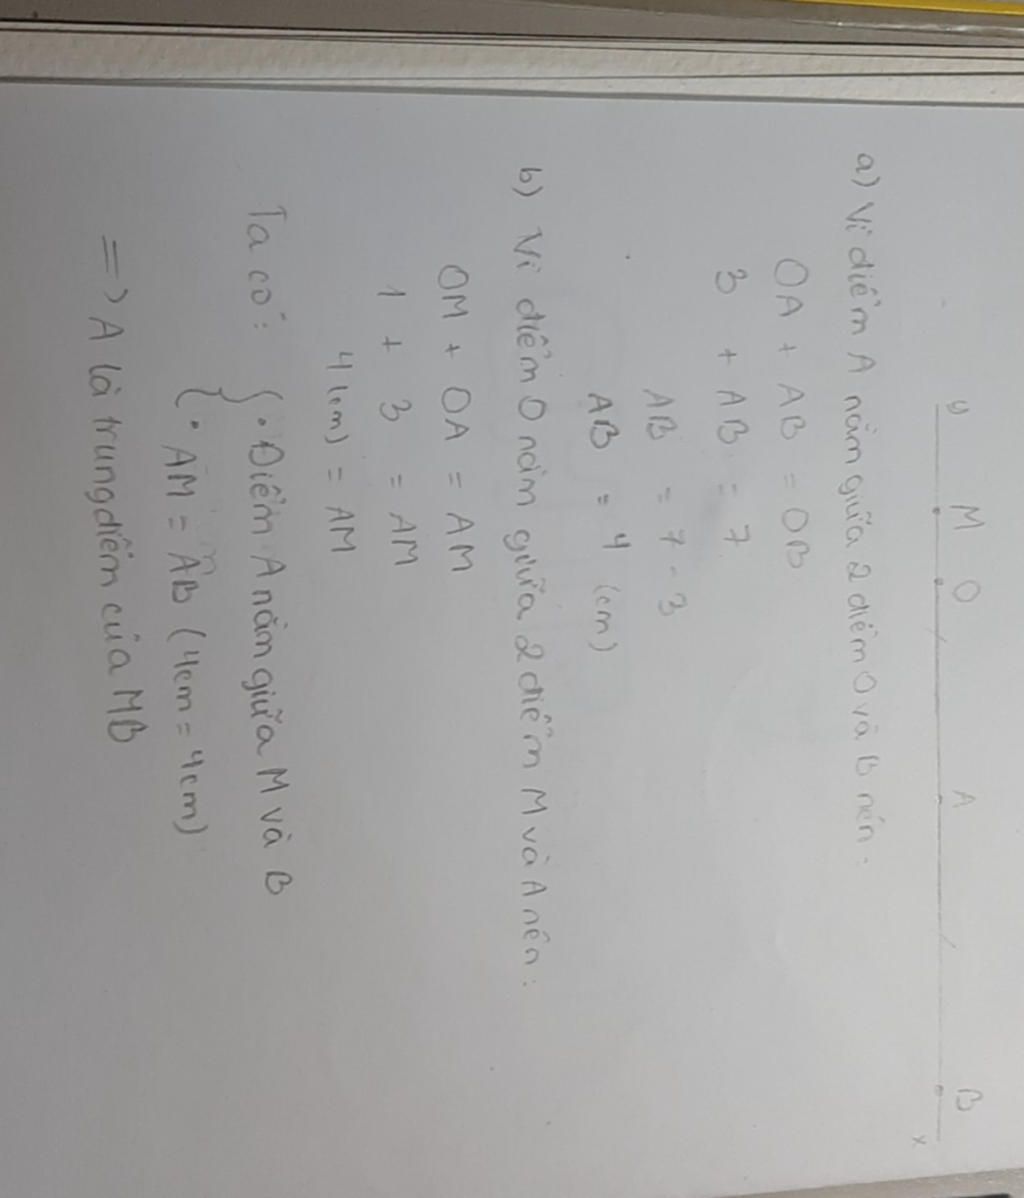 y M O A B x
a) Vì điểm A nằm giữa 2 điểm O và B nên:
OA + AB = OB
3 + AB = 7
AB = 7 - 3
AB = 4 (cm)
b) Vì điểm O nằm giữa 2 điểm M và A nên:
OM + OA = AM
1 + 3 = AM
4 (cm) = AM
Ta có: { • Điểm A nằm giữa M và B
• AM = AB (4cm = 4cm)
=> A là trung điểm của MB